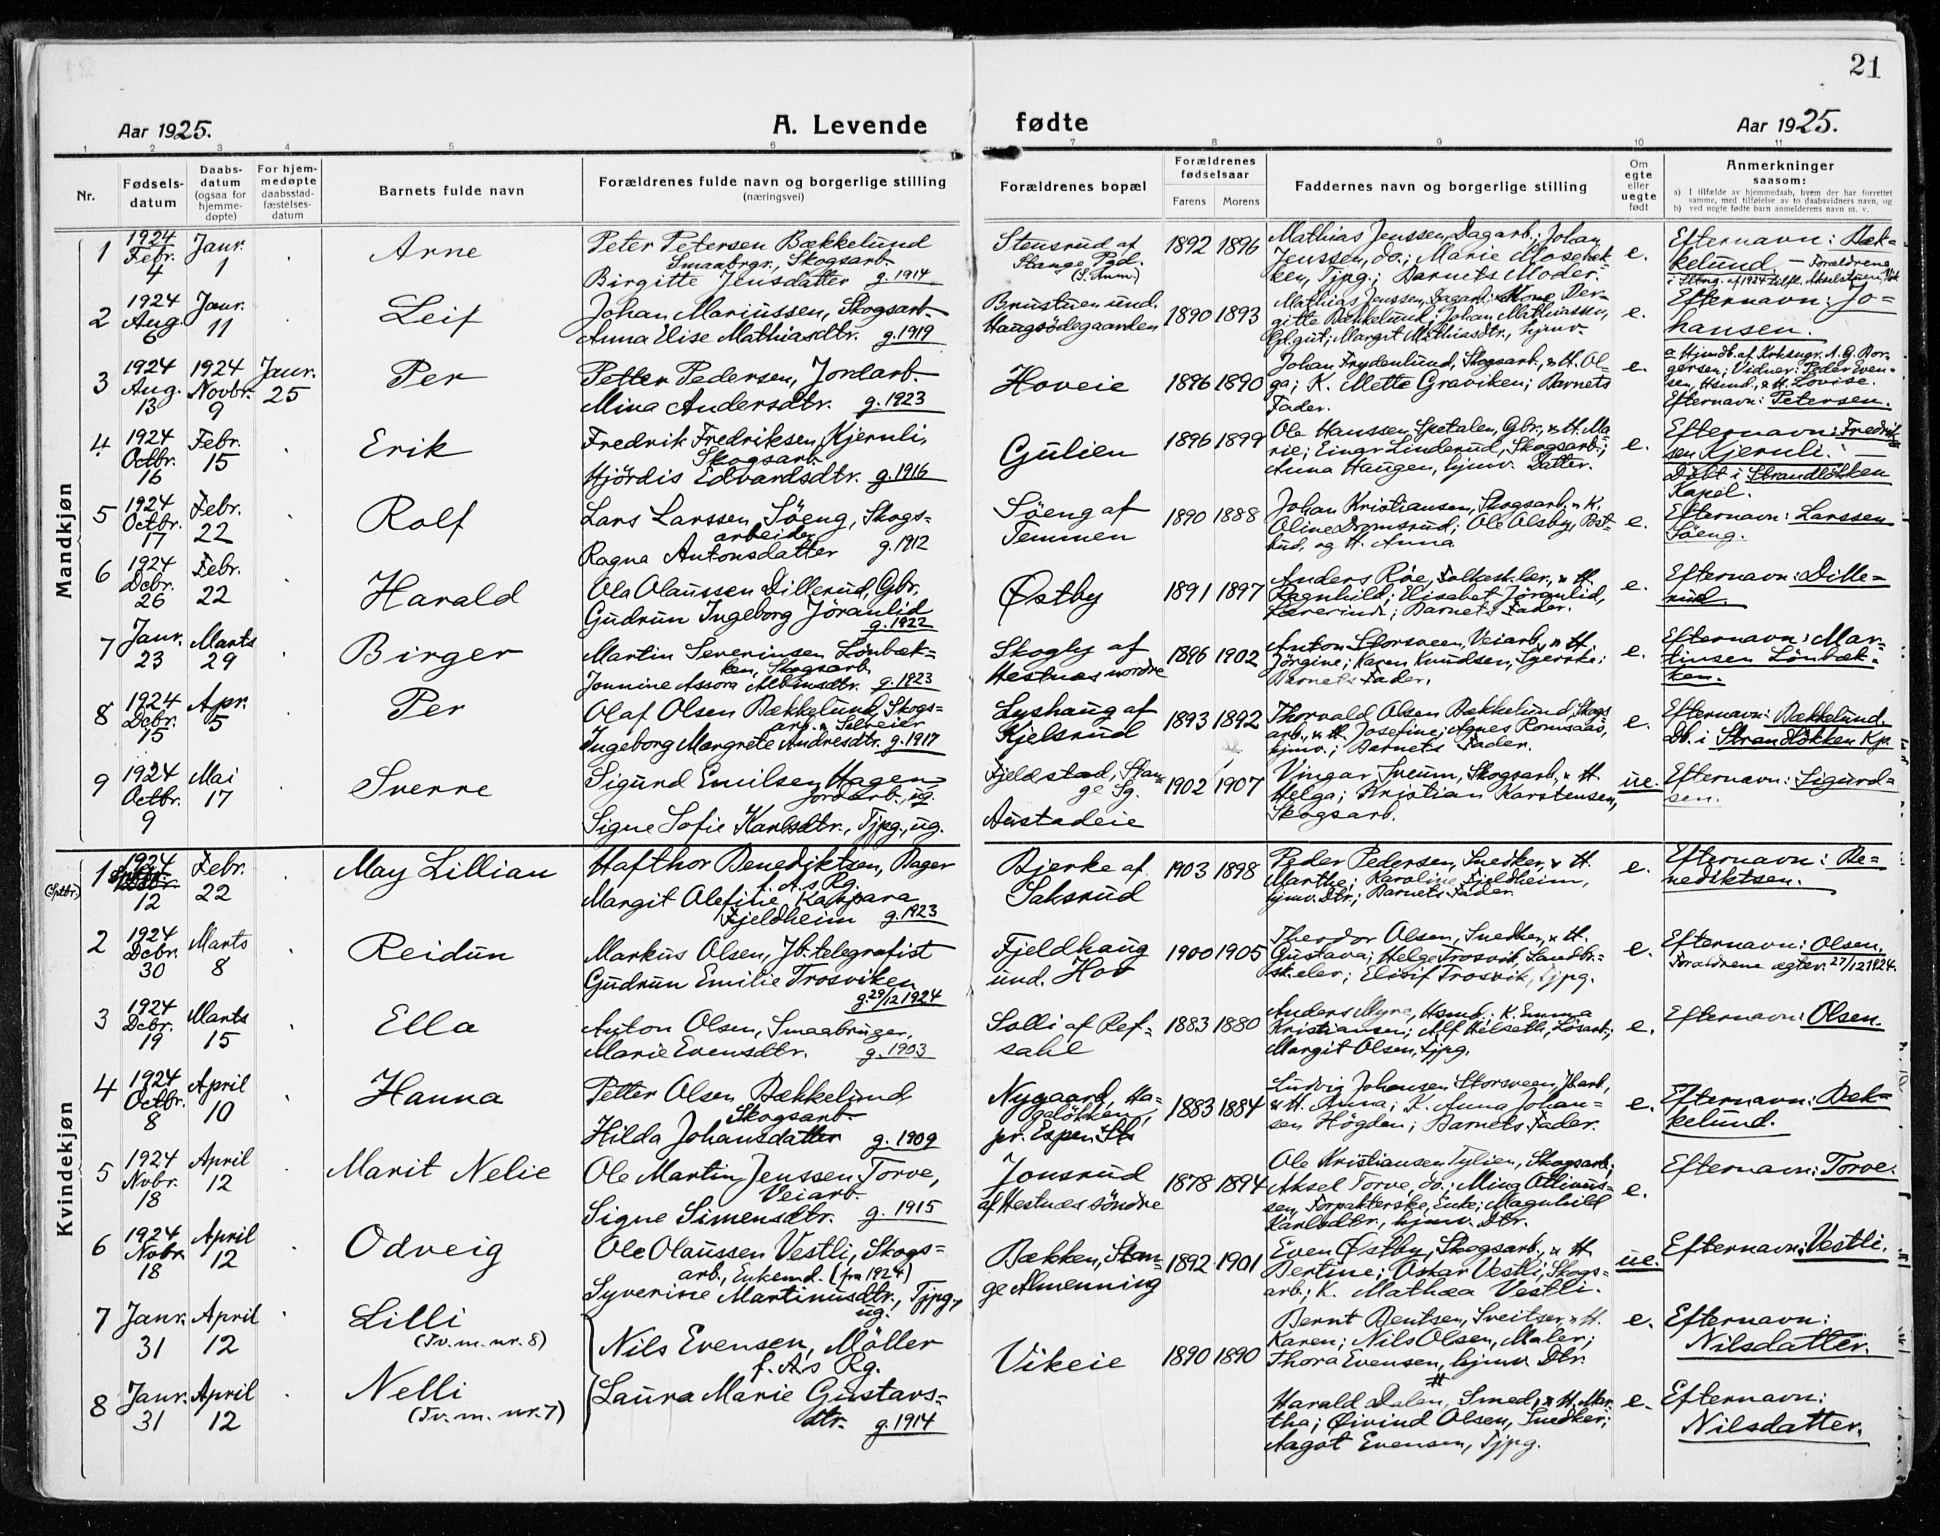 21
Aar 1925.
A. Levende fødte
Aar 1925.
1 2 3 4 5 6 7 8 9 10 11
Nr.
Fødsels-
datum
Daabs-
datum
(ogsaa for
hjemme-
døpte)
For hjem-
medøpte
daabsstad-
fæstelses-
datum
Barnets fulde navn
Forældrenes fulde navn og borgerlige stilling
(næringsvei)
Forældrenes bopæl
Forældrenes
fødselsaar
Farens Morens
Faddernes navn og borgerlige stilling
Om
egte
eller
uegte
født
Anmerkninger
saasom:
a) I tilfælde av hjemmedaab, hvem der har forrettet
samme, med tilføielse av to daabsvidners navn, og
b) ved uegte fødte barn anmelderens navn m. v.
Mandkjøn
1
1924
Febr.
4
Janr.
1
Arne
Peter Petersen Bækkelund
Smaabrgr., Skogsarb.
Birgitte Jensdatter g. 1914
Stensrud af
Stange Pgd.
(S. Anm.)
1892 1896
Mathias Jenssen, Dagarb.; Johan
Jenssen, do.; Marie Mosebek-
ken, Tjpg.; Barnets Moder.
e.
Efternavn: Bæk-
kelund — Forældrene
2
1924
Aug.
6
Janr.
11
Leif
Johan Mariussen, Skogsarb.
Anna Elise Mathiasdtr. g. 1919
Brustuen und.
Haugsödegaarden
1890 1893
Mathias Jenssen, Dagarb.; Kone Ber-
gitte Bækkelund; Johan Mathiassen,
Glgut; Margit Mathiasdtr., hjmv.
e.
Efternavn: Jo-
hansen.
3
1924
Aug.
13
1924
Novbr.
9
Janr.
25
Per
Petter Pedersen, Jordarb.
Mina Andersdtr. g. 1923
Hoveie
1896 1890
Johan Frydenlund, Skogsarb., & H. Ol-
ga; K. Mette Graviken; Barnets
Fader.
e.
a Hjmdb. af Krksngr. A. G. Bor-
gersen; Vidner: Peder Even-
sen, Hsmd., & H. Lovise.
Efternavn: Petersen.
4
1924
Octbr.
16
Febr.
15
Erik
Fredrik Fredriksen Kjernli,
Skogsarb.
Hjördis Edvardsdtr. g. 1916
Gulien
1896 1899
Ole Hanssen Spetalen, Gbr., & H. Ma-
rie; Einar Linderud, Skogsarb.;
Anna Haugen, hjmv. Datter.
e.
Efternavn: Fredrik-
sen Kjernli. —
Döbt i Strandlökken
Kapel.
5
1924
Octbr.
17
Febr.
22
Rolf
Lars Larssen Söeng, Skogs-
arbeider
Ragna Antonsdatter g. 1912
Söeng af
Temmen
1890 1888
Johan Kristiansen, Skogsarb., & K.
Oline Dromsrud; Ole Olsby, Pst-
bud, og H. Anna
e.
Efternavn: Larssen
Söeng.
6
1924
Dcbr.
26
Febr.
22
Harald
Ola Olaussen Dillerud, Gbr.
Gudrun Ingeborg Joranlid
g. 1922
Østby
1891 1897
Anders Röe, Folkesk.lær., & H.
Ragnhild; Elisabet Jöranlid,
Lærerinde; Barnets Fader.
e.
Efternavn: Dille-
rud.
7
Janr.
23
Marts
29
Birger
Martin Severinsen Lönbæk-
ken, Skogsarb.
Jonnine Assora Albinsdtr. g. 1923
Skogly af
Hestnes nordre
1896 1902
Anton Storsveen, Veiarb., & H.
Jörgine; Karen Knudsen, Syerske;
Barnets Fader.
e.
Efternavn: Mar-
tinsen Lönbæk-
ken.
8
1924
Dcbr.
15
Apr.
5
Per
Olaf Olsen Bækkelund, Skogs-
arb. & Selveier
Ingeborg Margrete Andresdtr. g. 1917
Lyshaug af
Kjelsrud
1893 1892
Thorvald Olsen Bækkelund, Skogs-
arb., & H. Josefine; Agnes Romsaas,
hjmv.; Barnets Fader.
e.
Efternavn: Bækkelund.
Db. i Strandlökken Kp.
9
1924
Octbr.
9
Mai
17
Sverre
Sigurd Emilsen Hagen
Jordarb., ug.
Signe Sofie Karlsdtr., Tjpg., ug.
Fjeldstad, Stan-
ge Sg.
Austadeie
1902 1907
Vingar Sveum, Skogsarb., & H.
Helga; Kristian Karstensen,
Skogsarb.
ue.
Efternavn: Sigurd-
sen.
Kvindekjøn
1
(Sptbr.)
1924
12
Febr.
22
May Lillian
Hafthor Benediktsen, Bager
f. A/s Rg.
Margit Olefine Kaspara
Fjeldheim g. 1923
Bjerke af
Saksrud
1903 1898
Peder Pedersen, Snedker, & H.
Marthe; Karoline Fjeldheim,
hjmv. Dtr.; Barnets Fader.
e.
Efternavn: Be-
nediktsen.
2
1924
Dcbr.
30
Marts
8
Reidun
Markus Olsen, Jb. telegrafist
Gudrun Emilie Trosviken
g. 29/12 1924
Fjeldhaug
und. Hov
1900 1905
Theodor Olsen, Snedker, & H.
Gustava; Helge Trosvik, Landbr.-
skeelev; Elisif Trosvik, Tjpg.
e.
Efternavn: Olsen.
Forældrene ægtev. 27/12 1924.
3
1924
Dcbr.
19
Marts
15
Ella
Anton Olsen, Smaabruger,
Marie Evensdtr. g. 1903
Solli af Ref-
sahl
1883 1880
Anders Myre, Hsmd.; K. Emma
Kristiansen; Alf Hilseth, Lösarb.;
Margit Olsen, Tjpg.
e.
Efternavn: Olsen.
4
1924
Octbr.
8
April
10
Hanna
Petter Olsen Bækkelund
Skogsarb.
Hilda Johansdatter g. 1909
Nygaard, Ha-
galökken,
pr. Espen St.
1883 1884
Ludvig Johansen Storsveen, Jb.arb.,
& H. Anna; K. Anna Johan-
sen Högden; Barnets Fader.
e.
Efternavn: Bæk-
kelund.
5
1924
Nvbr.
18
April
12
Marit Nelie
Ole Martin Jenssen Torve,
Veiarb.
Signe Simensdtr. g. 1915
Jonsrud
af Hestnes söndre
1878 1894
Ole Kristiansen Tylien, Skogsarb.;
Aksel Torve, do.; Mina Ottinus-
sen, Forpakterske, Enke; Magnhild
Karlsdtr., hjmv. Dtr.
e.
Efternavn: Torve.
6
1924
Nvbr.
18
April
12
Odveig
Ole Olaussen Vestli, Skogs-
arb., Enkemd. (fra 1924)
Syverine Martinusdtr., Tjpg.,
ug.
Bækken, Stan-
ge Almenning
1892 1901
Even Østby, Skogsarb., & H.
Bertine; Oskar Vestli, Skogs-
arb.; K. Mathea Vestli.
ue.
Efternavn: Vestli.
7
Janr.
31
April
12
Lilli
(Tv. m. nr. 8)
Nils Evensen, Möller
f. A/s Rg.
Laura Marie Gustavs-
dtr. g. 1914
Vikeie
1890 1890
Bernt Bentsen, Sveitser, & H.
Karen; Nils Olsen, Maler;
Thora Evensen, hjmv. Dtr.
e.
Efternavn:
Nilsdatter.
8
Janr.
31
April
12
Nelli
(Tv. m. nr. 7)
Harald Dalen, Smed, & H. Mar-
tha; Øivind Olsen, Snedker;
Aagot Evensen, Tjpg.
e.
Efternavn:
Nilsdatter.